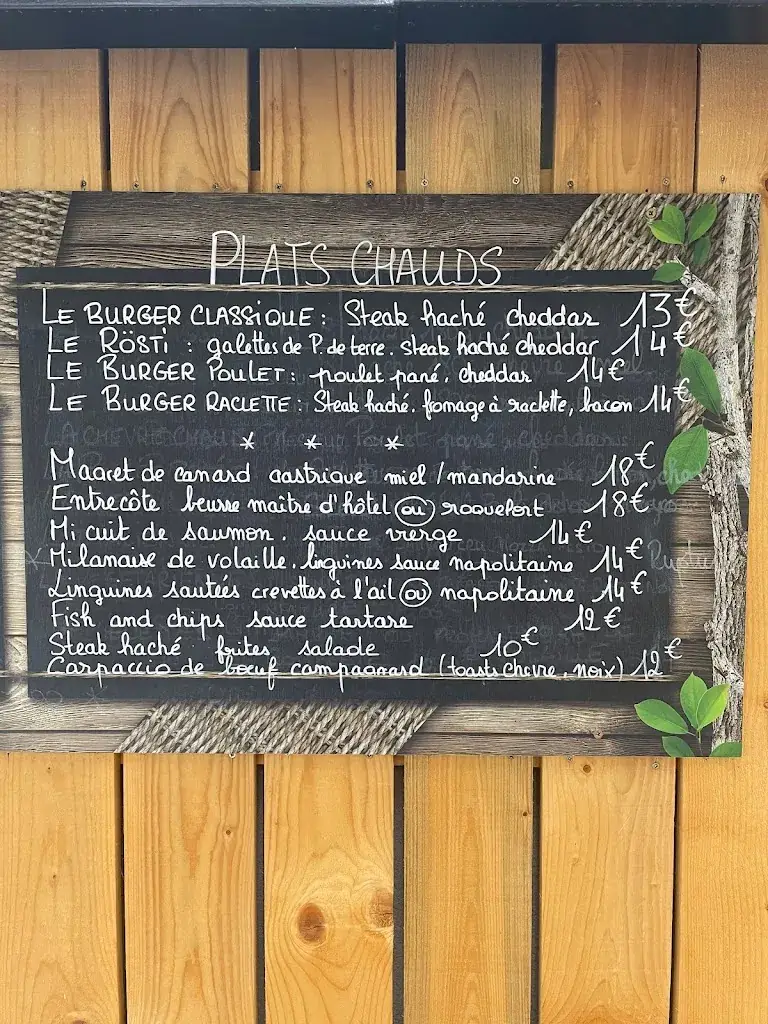 PLATS CHAUDS
LE BURGER CLASSIQUE : Steak haché cheddar 13€
LE RÖSTi : galettes de P. de terre. steak haché cheddar 14€
LE BURGER POULET : poulet pané, cheddar 14€
LE BURGER RACLETTE : Steak haché, fromage à raclette, bacon 14€
* * *
Magret de canard gastrique miel / mandarine 18€
Entrecôte beurre maître d'hôtel ou roquefort 18€
Mi cuit de saumon. sauce vierge 14€
Milanaise de volaille, linguines sauce napolitaine 14€
Linguines sautées crevettes à l'ail ou napolitaine 14€
Fish and chips sauce tartare 12€
Steak haché frites salade 10€
Carpaccio de boeuf campagnard (toasts chèvre, noix) 12€